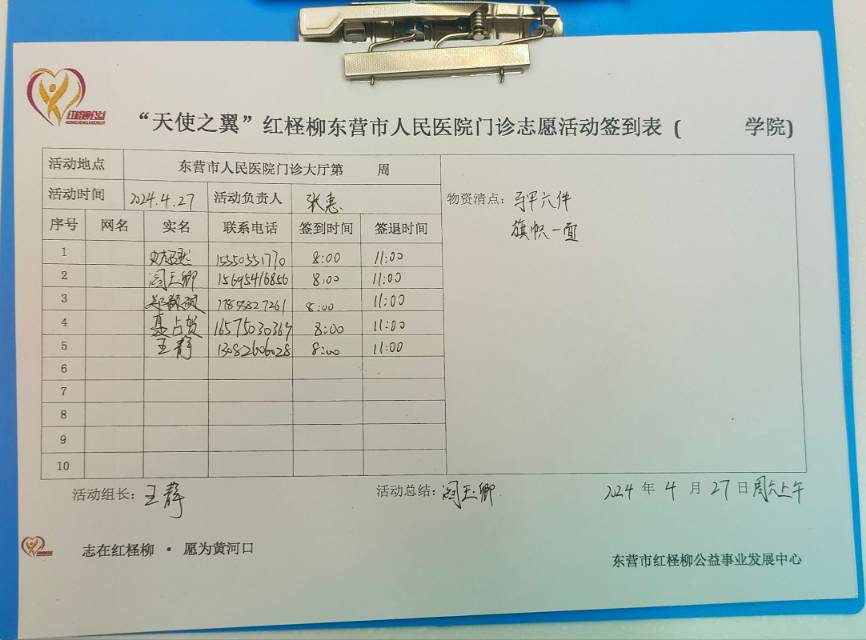 “天使之翼”红柽柳东营市人民医院门诊志愿活动签到表 ( 学院)
活动地点 东营市人民医院门诊大厅第 周
活动时间 2024.4.27 活动负责人 张惠
物资清点：马甲六件
旗帜一面
序号 网名 实名 联系电话 签到时间 签退时间
1 8:00 11:00
2 阎玉卿 15695416856 8:00 11:00
3 8:00 11:00
4 聂占贺 16575030367 8:00 11:00
5 王静 13082606028 8:00 11:00
6
7
8
9
10
活动组长：王静 活动总结：阎玉卿 2024 年 4 月 27 日周六上午
志在红柽柳 · 愿为黄河口
东营市红柽柳公益事业发展中心